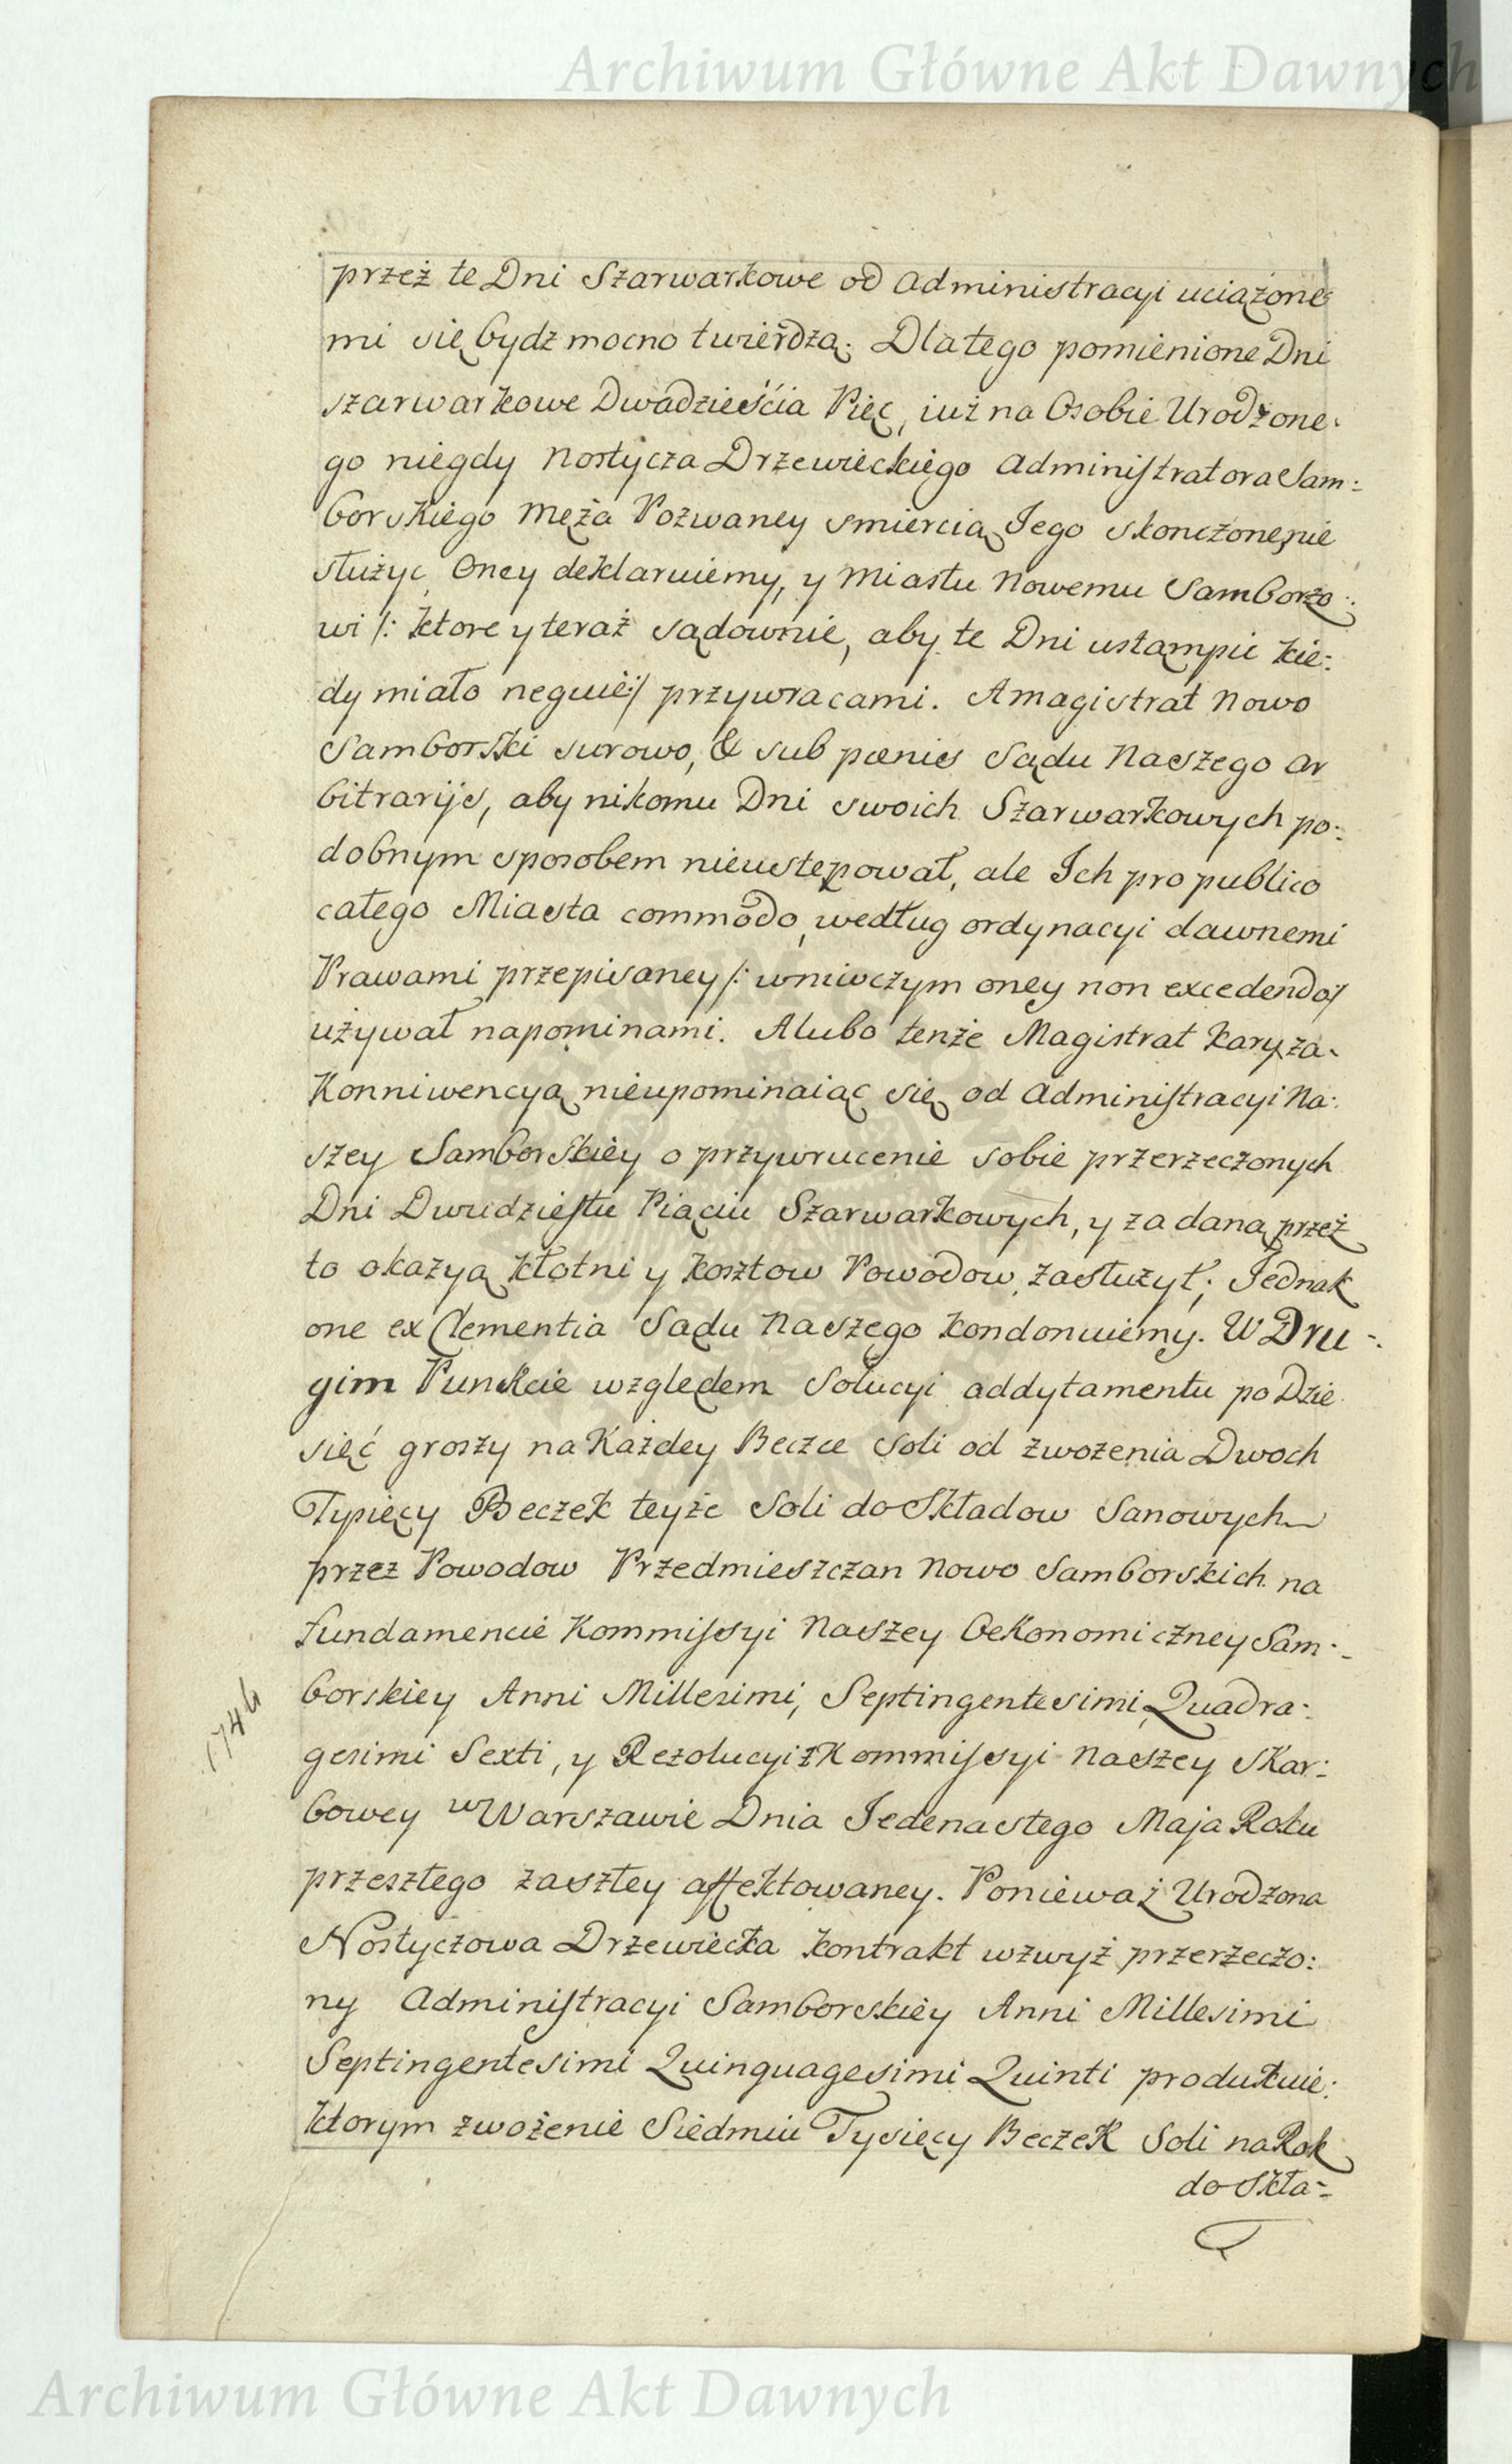 Archiwum Główne Akt Dawnych
przeż te Dni Szarwarkowe od Administracyi uciążone
mi się bydź mocno twierdzą. Dlatego pomienione Dni
szarwarkowe Dwadzieścia Pięc, iuż na Osobie Urodzone-
go niegdy Nostycza Drzewieckiego Administratora Sam=
borskiego Męża Pozwaney smiercią Jego skonczone, nie
służyc Oney deklaruiemy, y Miastu Nowemu Samborzo=
wi /: ktore y teraż sądownie, aby te Dni ustąmpic kie=
dy miało neguie:/ przywracami. A Magistrat Nowo
Samborski surowo, & sub pœnis Sądu Naszego ar
bitrarijs, aby nikomu Dni swoich Szarwarkowych po=
dobnym sposobem nieustępował, ale Ich pro publico
całego Miasta commodo, według ordynacyi dawnemi
Prawami przepisaney /: wniwczym oney non excedendo:/
używał napominami. A lubo tenże Magistrat kary za-
Konniwencyą nieupominaiąc się od Administracyi Na=
szey Samborskiey o przywrucenie sobie przerzeczonych
Dni Dwudziestu Piąciu Szarwarkowych, y za daną przeż
to okazyą kłotni y kosztow Powodow, zasłużył; Jednak
one ex Clementia Sądu Naszego kondonuiemy. W Dru=
gim Punkcie względem Solucyi addytamentu po Dzie
sięć groszy na Każdey Beczce Soli od zwożenia Dwoch
Tysięcy Beczek teyże Soli do Składow Sanowych
przez Powodow Przedmieszczan Nowo Samborskich na
fundamencie Kommissyi Naszey Oekonomiczney Sam=
borskiey Anni Millesimi, Septingentesimi, Quadra=
1746
gesimi Sexti, y Rezolucyi z Kommissyi Naszey Skar=
bowey w Warszawie Dnia Jedenastego Maja Roku
przeszłego zaszłey affektowaney. Ponieważ Urodzona
Nostyczowa Drzewiecka kontrakt wzwyż przerzeczo=
ny Administracyi Samborskiey Anni Millesimi
Septingentesimi Quinquagesimi Quinti produkuie:
ktorym zwożenie Siedmiu Tysięcy Beczek Soli na Rok
do Skła=
Archiwum Główne Akt Dawnych